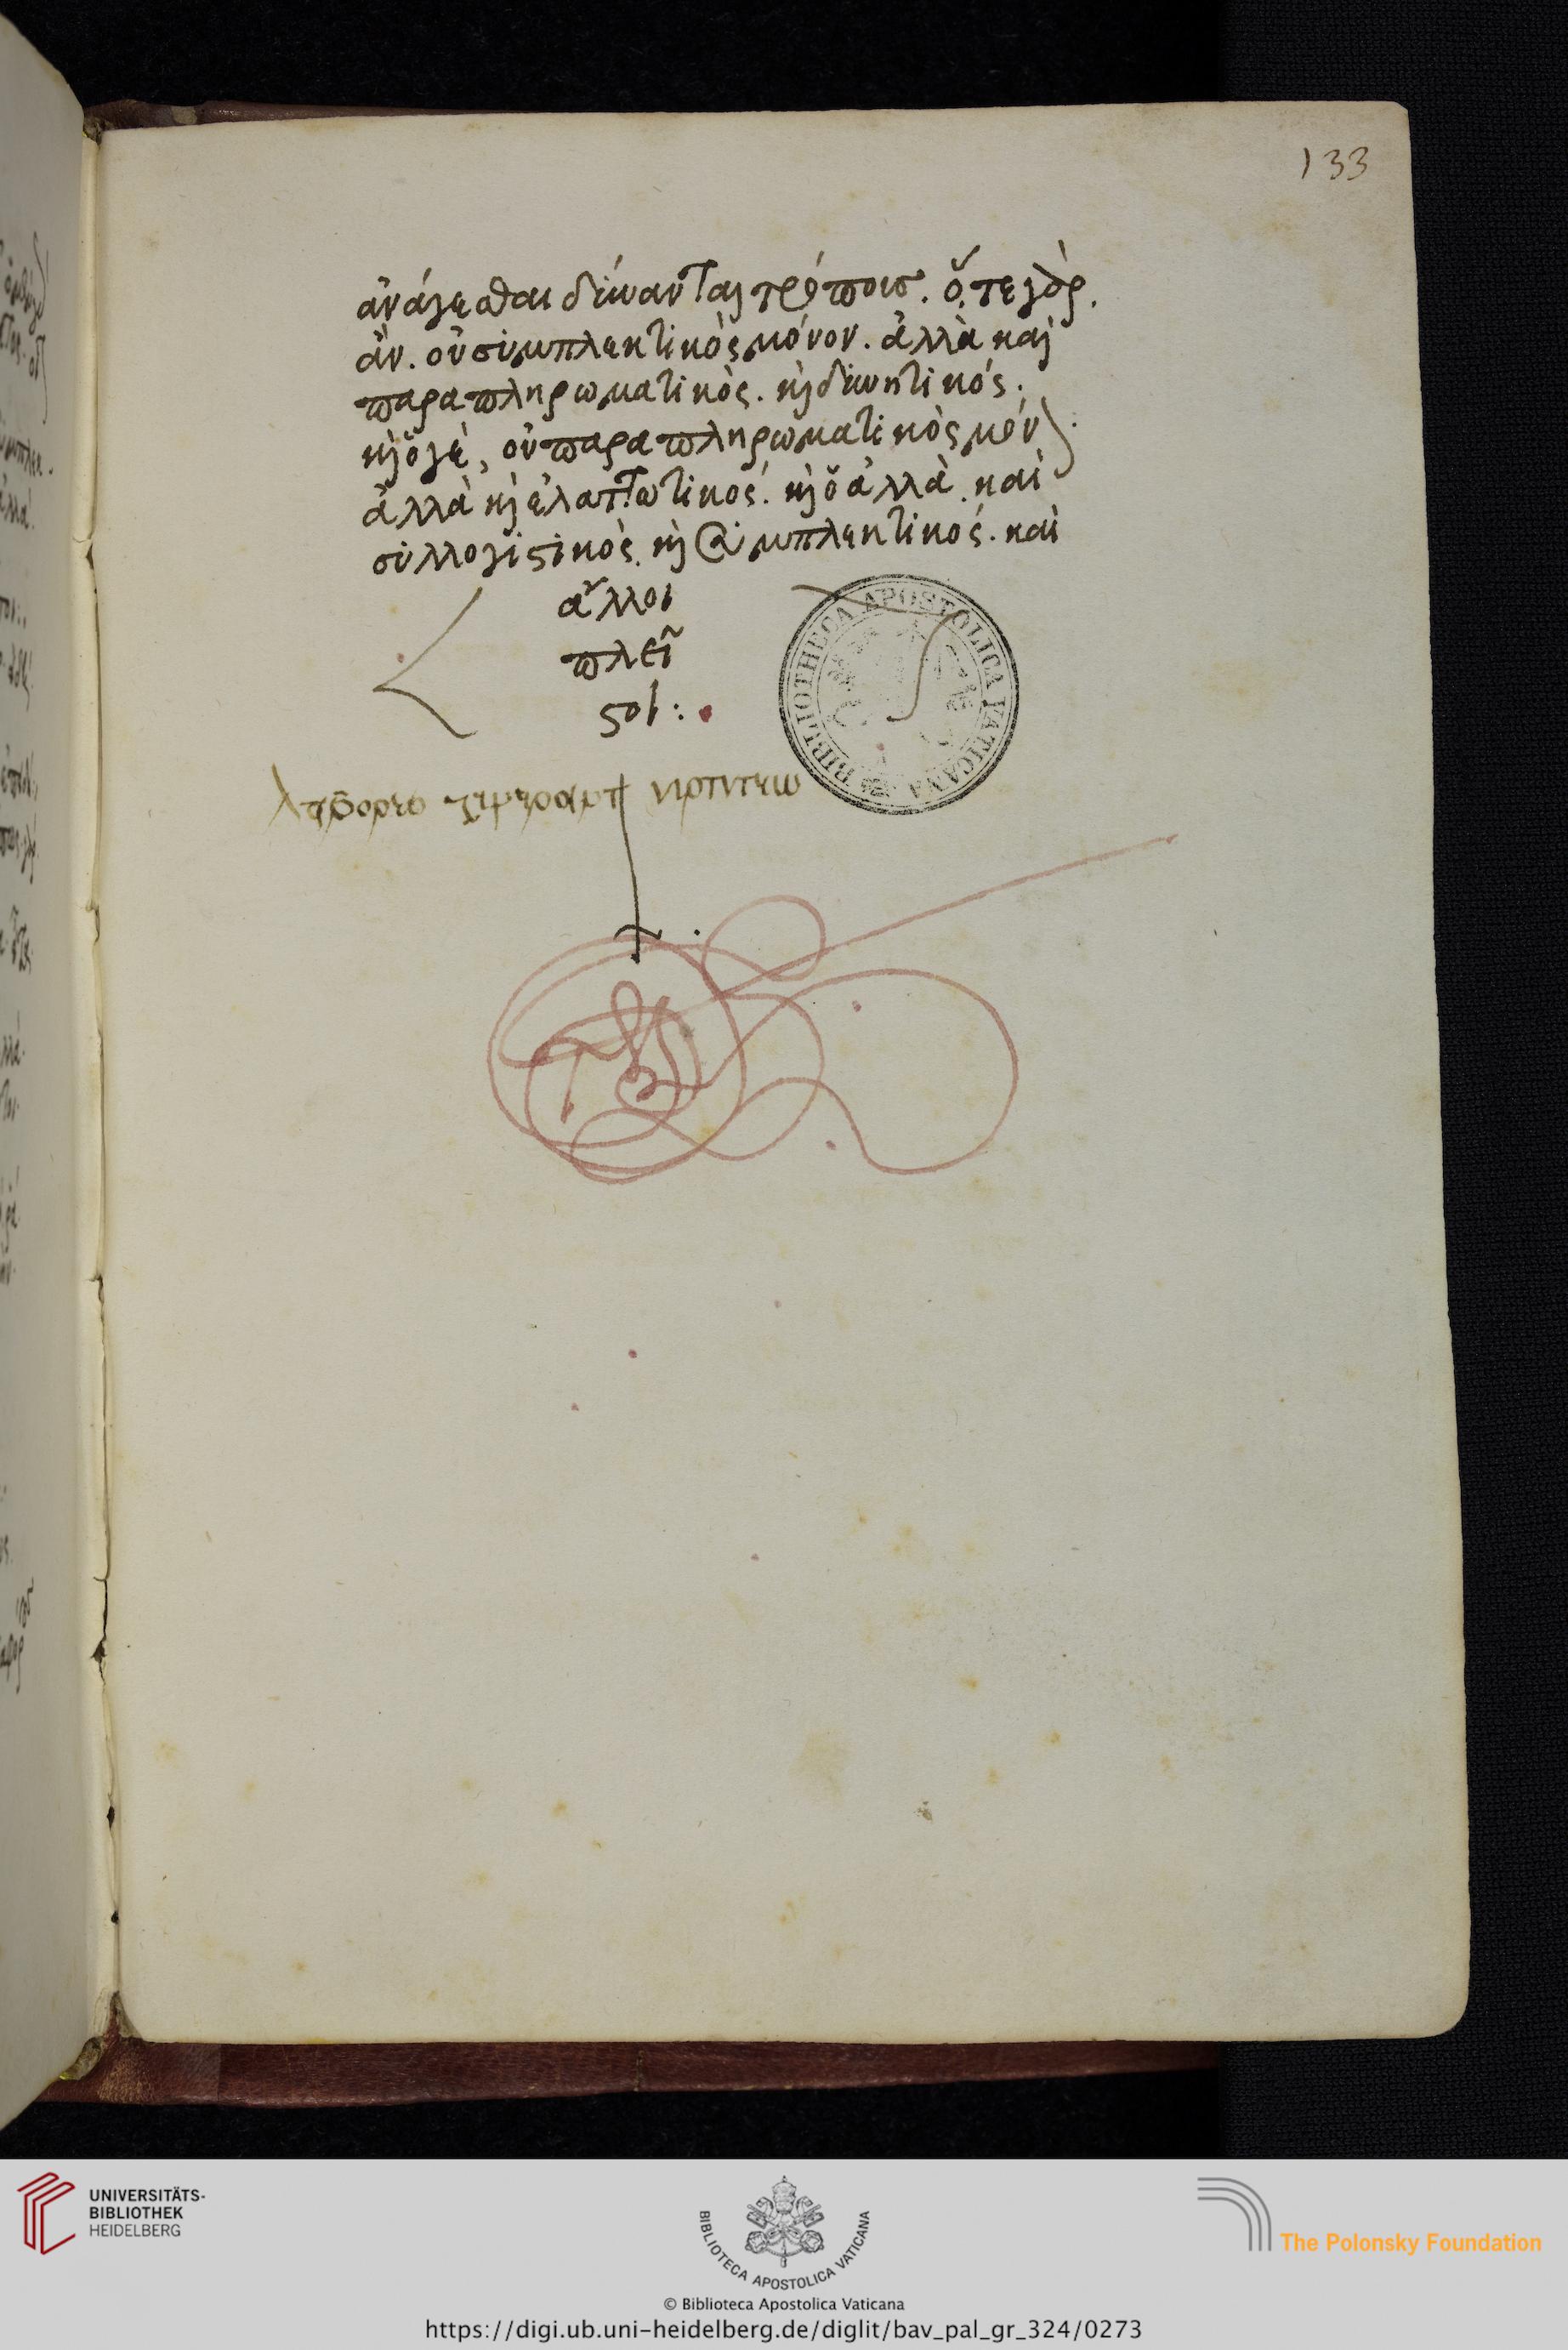 133
ἀνάγεσθαι δύνανται τρόποις. ὅ, τε γὰρ.
ἀν. οὐ συμπλεκτικὸς μόνον. ἀλλὰ καὶ
παραπληρωματικὸς. κὶ δυνητικός.
κὶ ὅ γὲ, οὐ παραπληρωματικὸς μόν
ἀλλὰ κὶ ἐλαττωτικός. κὶ ὅ ἀλλὰ. καὶ
συλλογιστικὸς. κὶ συμπλεκτικός. καὶ
ἄλλοι
πλεῖ
στοι:
BIBLIOTHECA APOSTOLICA VATICANA
UNIVERSITÄTS-
BIBLIOTHEK
HEIDELBERG
BIBLIOTECA APOSTOLICA VATICANA
The Polonsky Foundation
© Biblioteca Apostolica Vaticana
https://digi.ub.uni-heidelberg.de/diglit/bav_pal_gr_324/0273